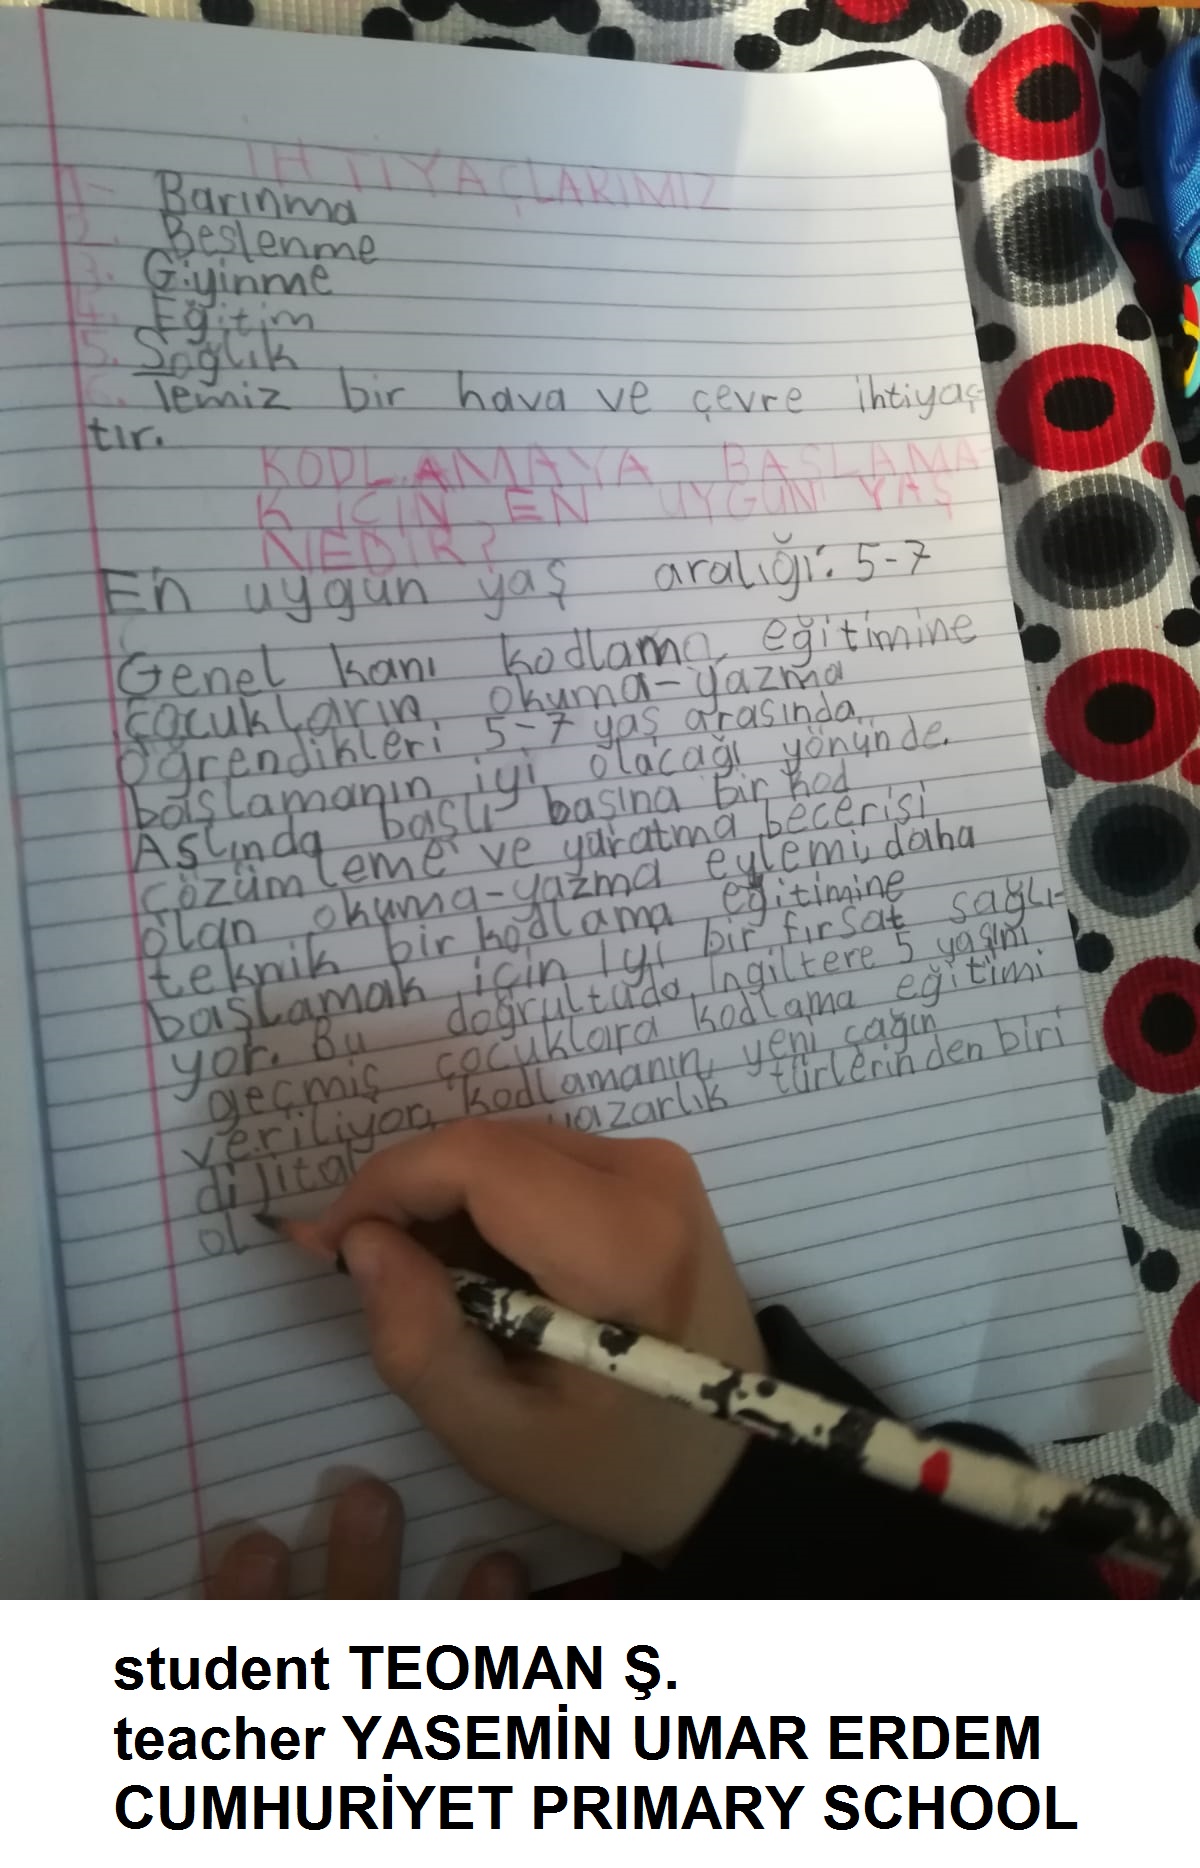 İHTİYAÇLARIMIZ
1- Barınma
2. Beslenme
3. Giyinme
4. Eğitim
5. Sağlık
6. Temiz bir hava ve çevre ihtiyaç-
tır.
KODLAMAYA BAŞLAMA-
K İÇİN EN UYGUN YAŞ
NEDİR?
En uygun yaş aralığı: 5-7
Genel kanı kodlama eğitimine
çocukların okuma-yazma
öğrendikleri 5-7 yaş arasında
başlamanın iyi olacağı yönünde.
Aslında başlı başına bir kod
çözümleme ve yaratma becerisi
olan okuma-yazma eylemi, daha
teknik bir kodlama eğitimine
başlamak için iyi bir fırsat sağlı-
yor. Bu doğrultuda İngiltere 5 yaşını
geçmiş çocuklara kodlama eğitimi
veriliyor, kodlamanın yeni çağın
dijital yazarlık türlerinden biri
ol
student TEOMAN Ş.
teacher YASEMİN UMAR ERDEM
CUMHURİYET PRIMARY SCHOOL